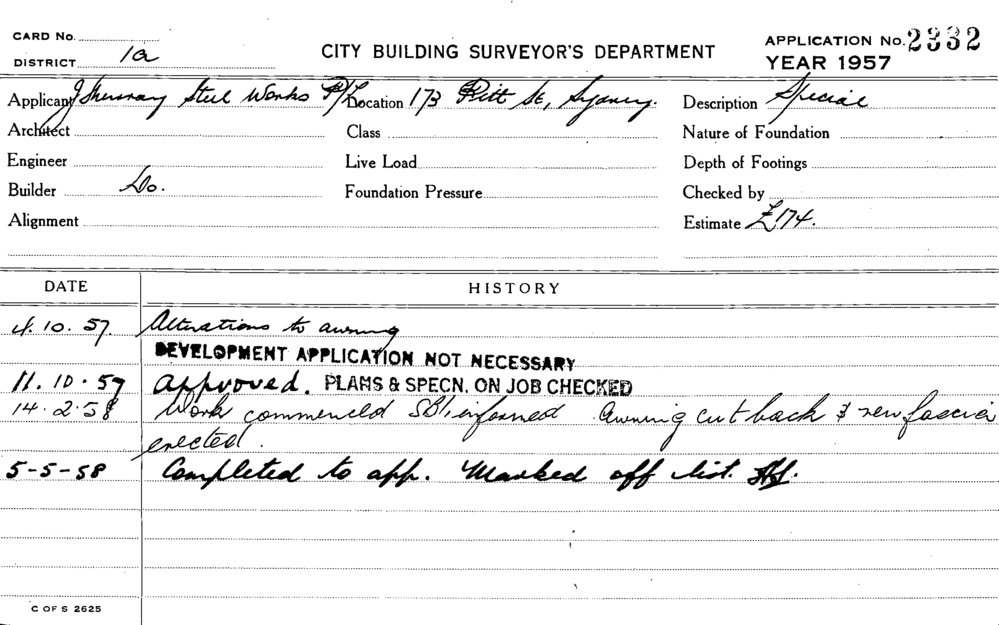 CARD No.
DISTRICT 1a
CITY BUILDING SURVEYOR'S DEPARTMENT
APPLICATION No. 2332
YEAR 1957
Applicant Steel Works P/L Location 173 Pitt St, Sydney. Description Special
Architect Class Nature of Foundation
Engineer Live Load Depth of Footings
Builder Do. Foundation Pressure Checked by
Alignment Estimate £174.
DATE HISTORY
4. 10. 57. Alterations to awning
DEVELOPMENT APPLICATION NOT NECESSARY
11. 10. 57 approved. PLANS & SPECN. ON JOB CHECKED
14. 2. 58 Work commenced informed Awning cut back & new fascia
erected.
5-5-58 Completed to app. Marked off list.
C OF S 2625